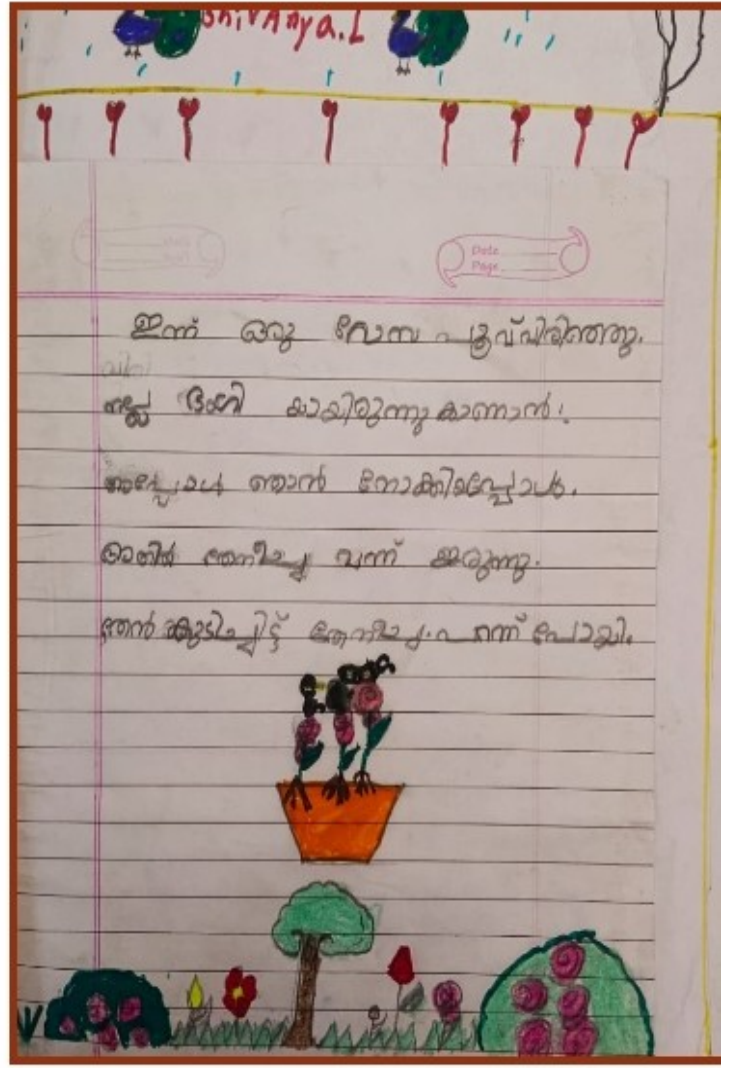 Shivanya.L
Date
Page
ഇന്ന് ഒരു റോസ പൂവ് വിരിഞ്ഞു.
നല്ല ഭംഗി യായിരുന്നു കാണാൻ!
അപ്പോൾ ഞാൻ നോക്കിയപ്പോൾ.
അതിൽ തേനീച്ച വന്ന് ഇരുന്നു.
തേൻ കുടിച്ചിട്ട് തേനീച്ച. പറന്ന് പോയി.